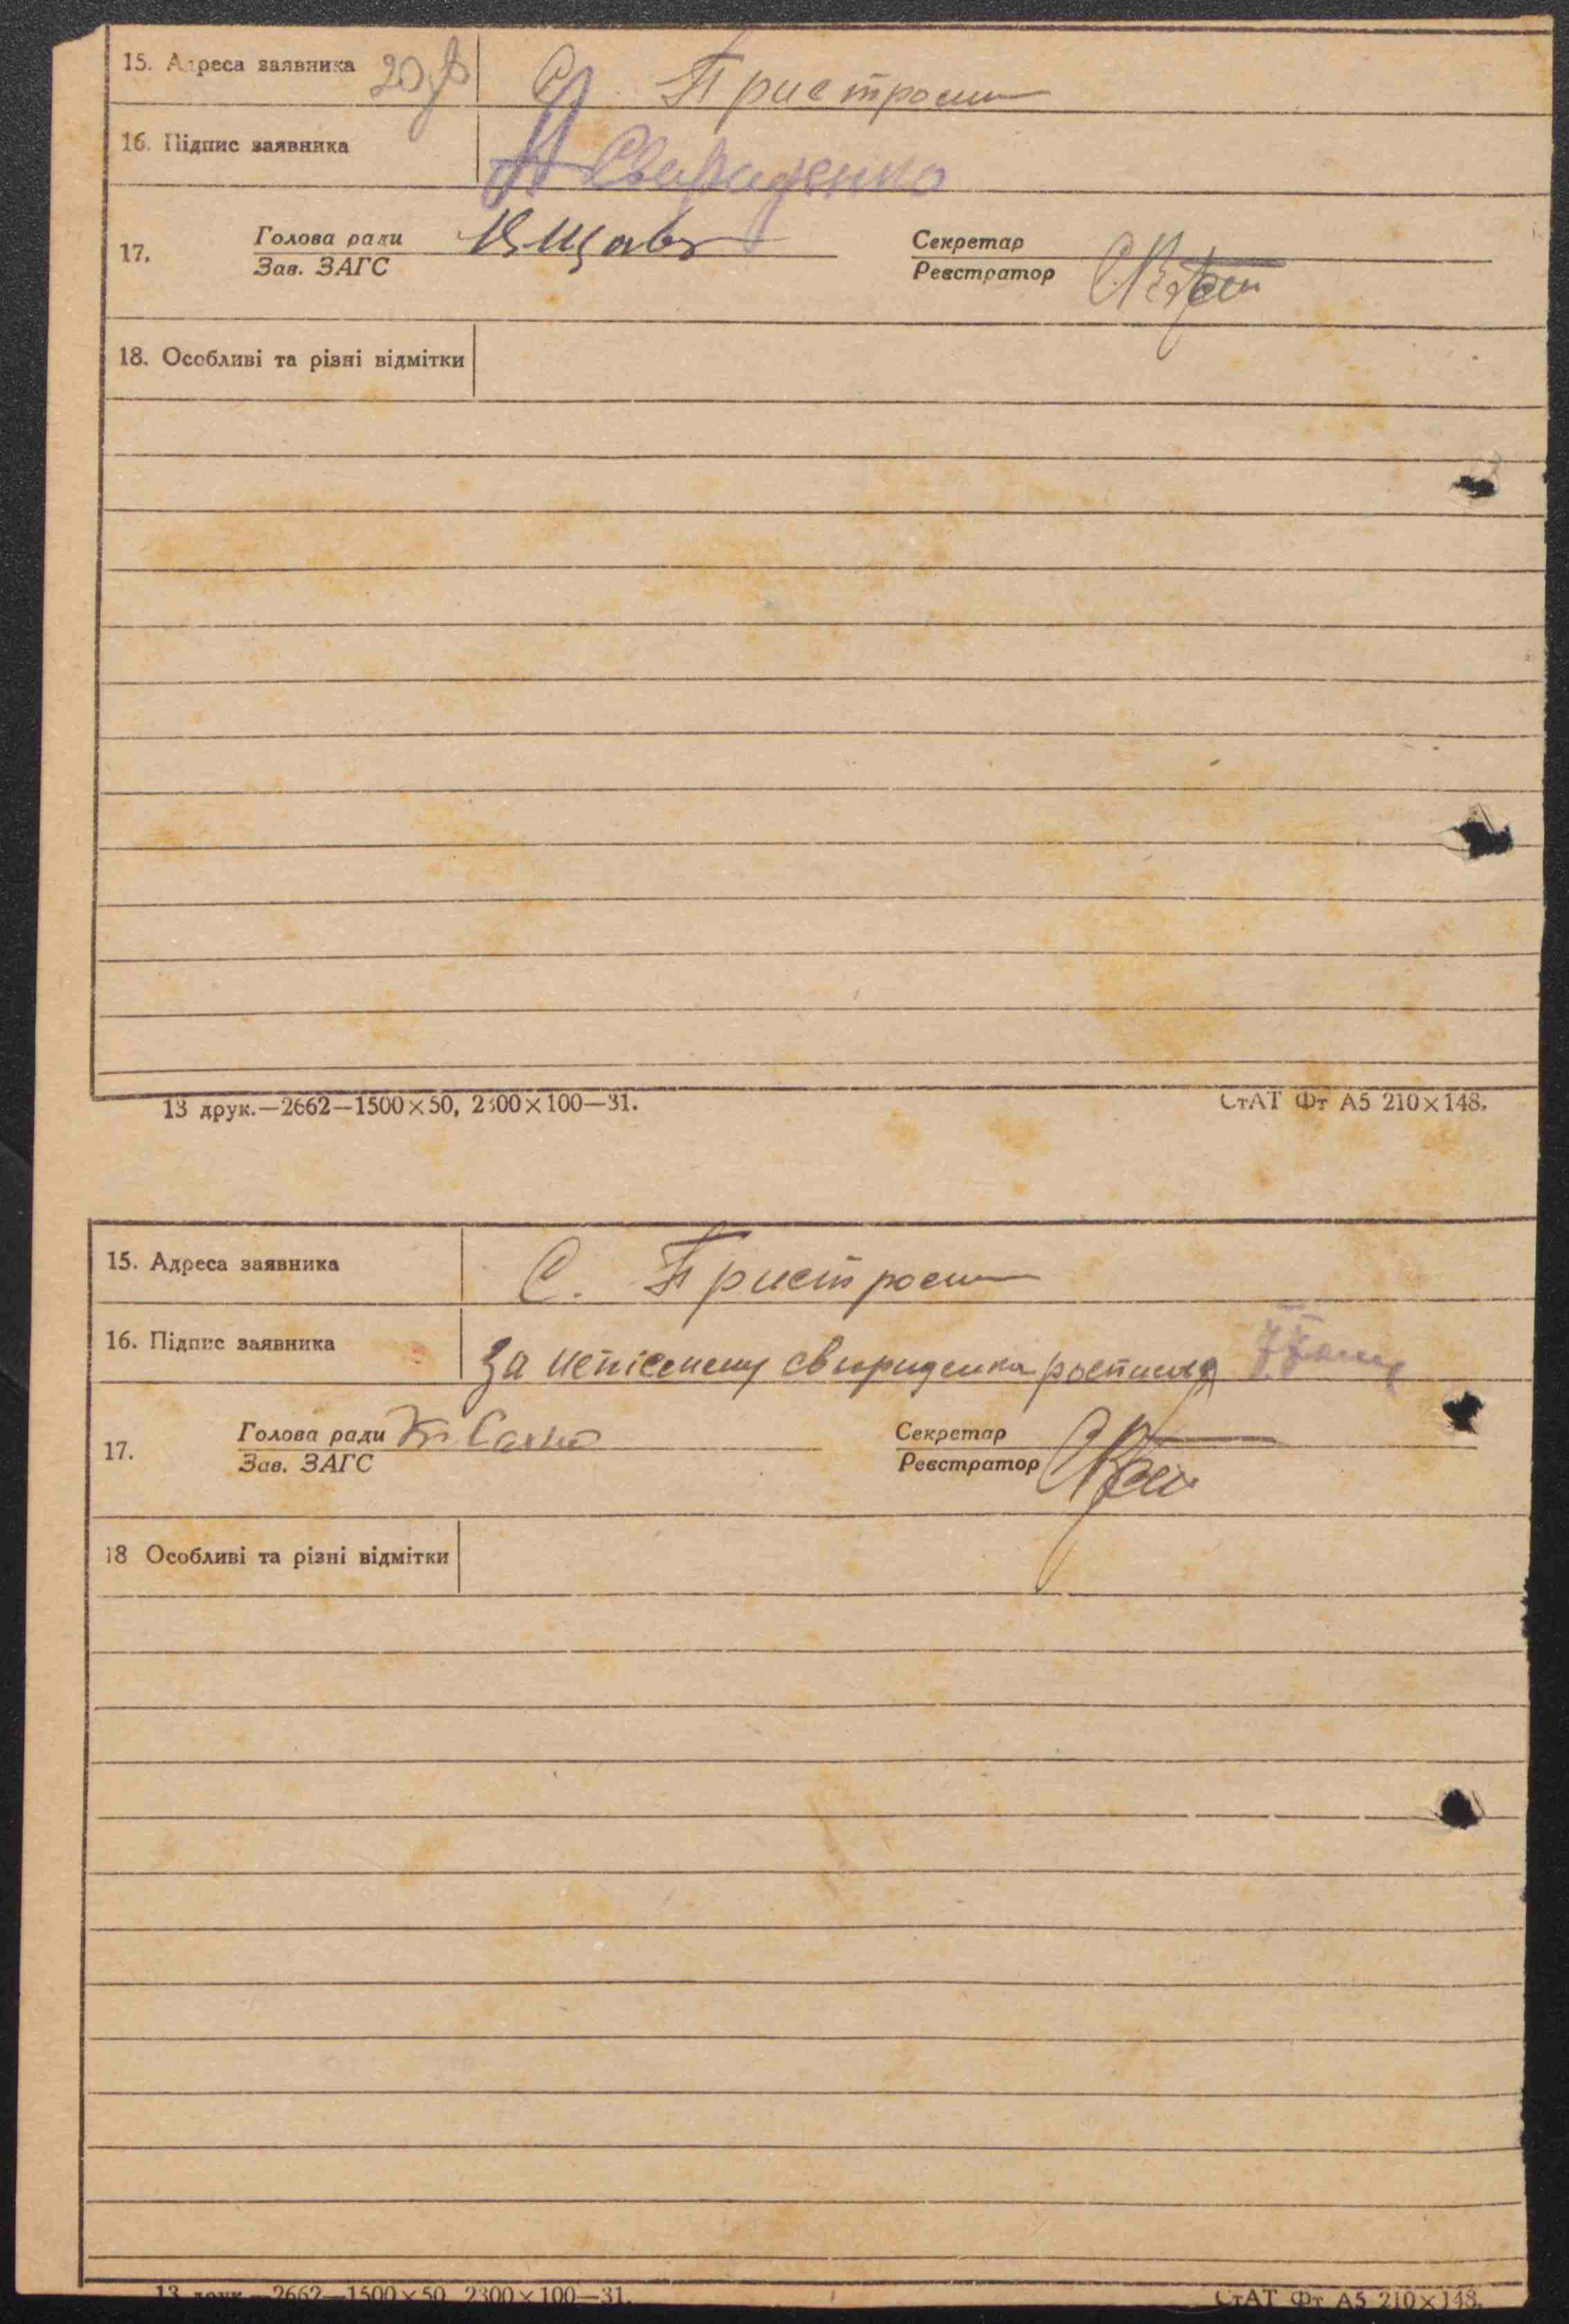 15. Адреса заявника 20 С. Пристроми
16. Підпис заявника Свираденко
Голова ради
17.
Зав. ЗАГС
Секретар
Реєстратор
18. Особливі та різні відмітки
13 друк.—2662—1500×50, 2300×100—31.
СтАТ Фт А5 210×148.
15. Адреса заявника С. Пристроми
16. Підпис заявника За непісьмену свириденка
Голова ради
17.
Зав. ЗАГС
Секретар
Реєстратор
18 Особливі та різні відмітки
13 друк.—2662—1500×50, 2300×100—31.
СтАТ Фт А5 210×148.